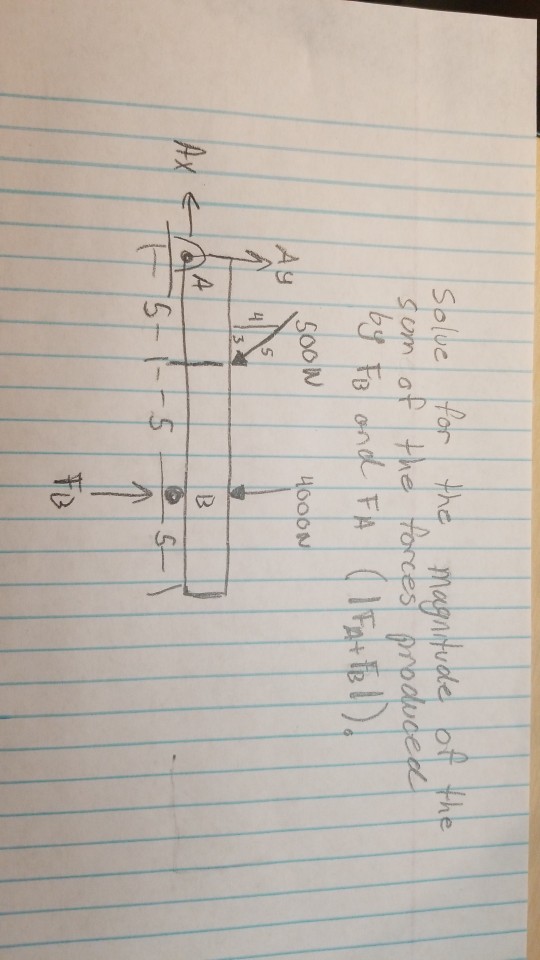 Solve for the magnitude of the
sum of the forces produced
by FB and FA (|FA+FB|).
Ay
500N
4000N
4
5
3
Ax
A
B
5
5
5
FB